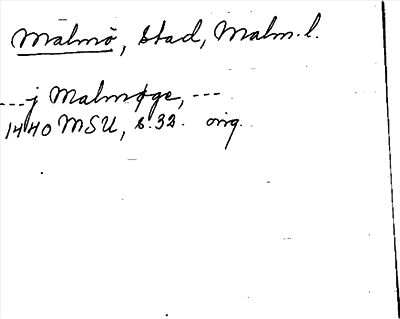 Malmö, stad, Malm. l.
--- j Malmøge, ---
1440 MSU, s. 32. orig.